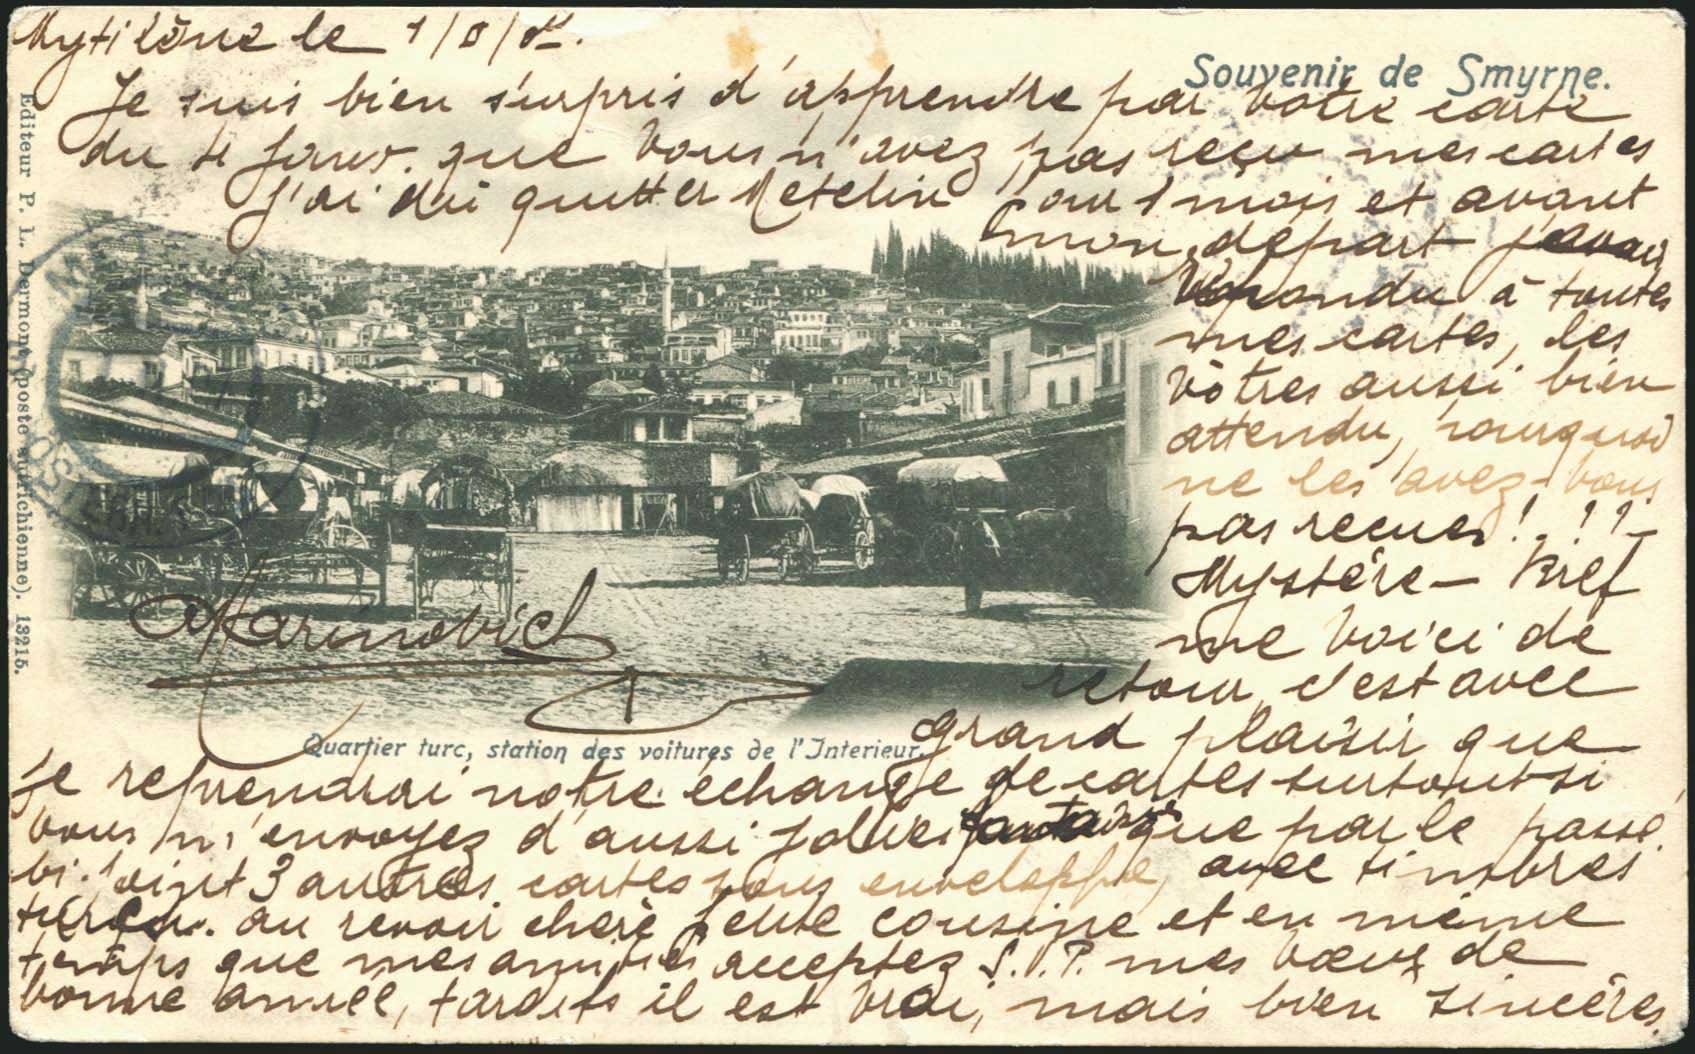 Mytilène le 1/II/
Souvenir de Smyrne.
Je suis bien surpris d'apprendre par votre carte
du 4 Janv. que vous n'avez pas reçu mes cartes
J'ai dû quitter Metelin pour 1 mois et avant
mon départ j'avais
répondu à toutes
mes cartes, les
vôtres aussi bien
attendu, pourquoi
ne les avez-vous
pas reçues! !?-
Mystère - Bref
me voici de
retour, c'est avec
grand plaisir que
je reprendrai notre échange de cartes surtout si
vous m'envoyez d'aussi jolies que par le passé.
3 autres cartes sous enveloppe, avec timbres
turcs. au revoir chère petite cousine et en même
temps que mes amitiés acceptez S.V.P. mes vœux de
bonne année, tardifs il est vrai, mais bien sincères.
Marinovich
Quartier turc, station des voitures de l'Interieur.
Editeur P. L. Dermond (poste autrichienne). 13215.